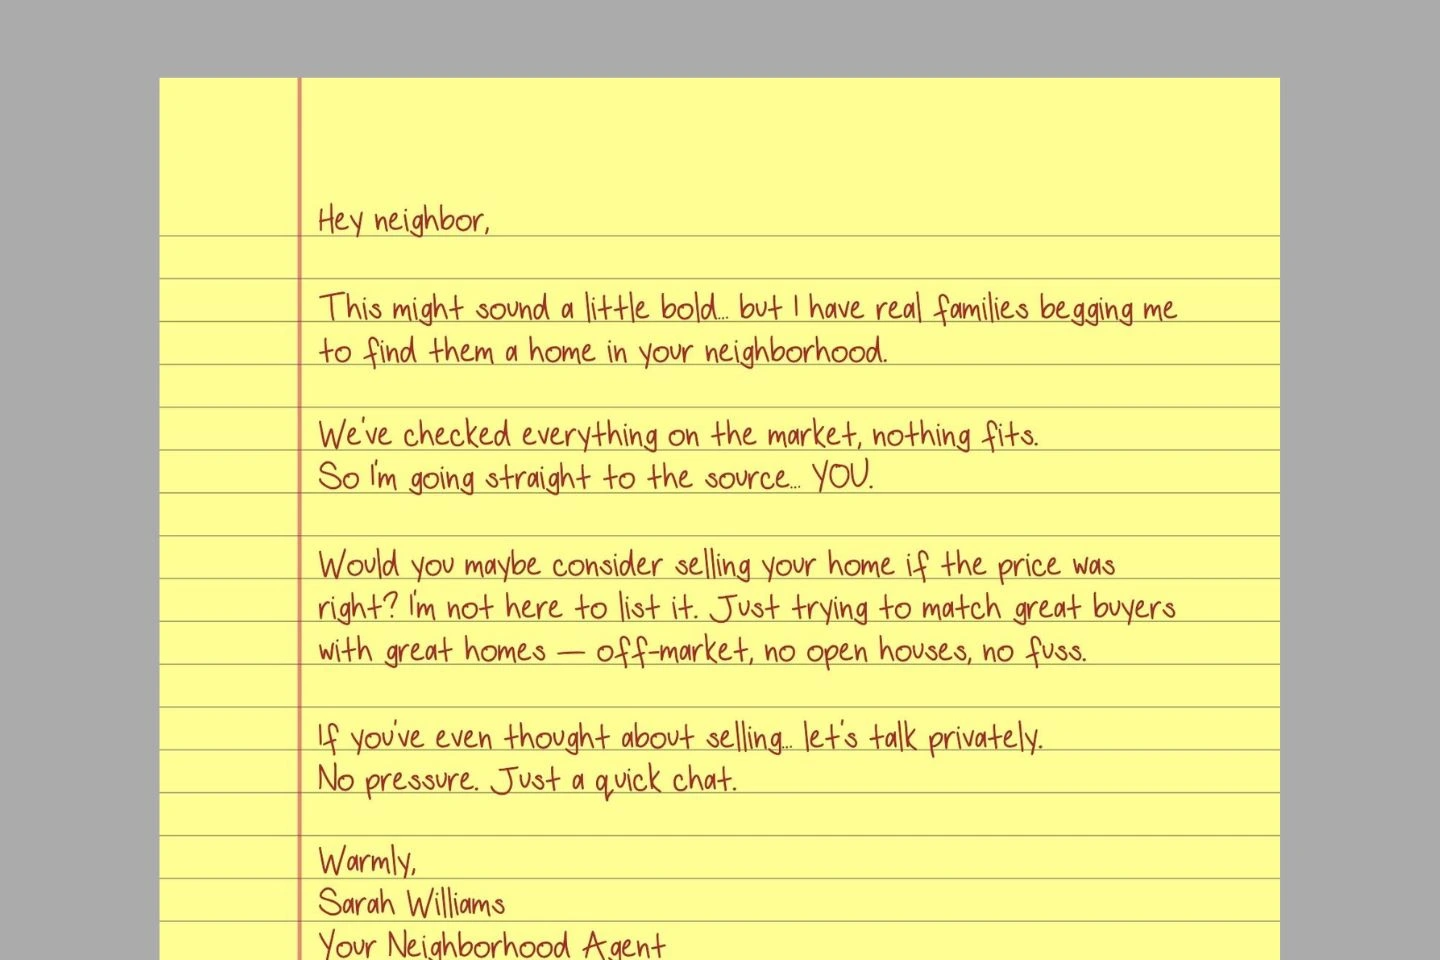 Hey neighbor,
This might sound a little bold... but I have real families begging me
to find them a home in your neighborhood.
We've checked everything on the market, nothing fits.
So I'm going straight to the source... YOU.
Would you maybe consider selling your home if the price was
right? I'm not here to list it. Just trying to match great buyers
with great homes — off-market, no open houses, no fuss.
If you've even thought about selling... let's talk privately.
No pressure. Just a quick chat.
Warmly,
Sarah Williams
Your Neighborhood Agent